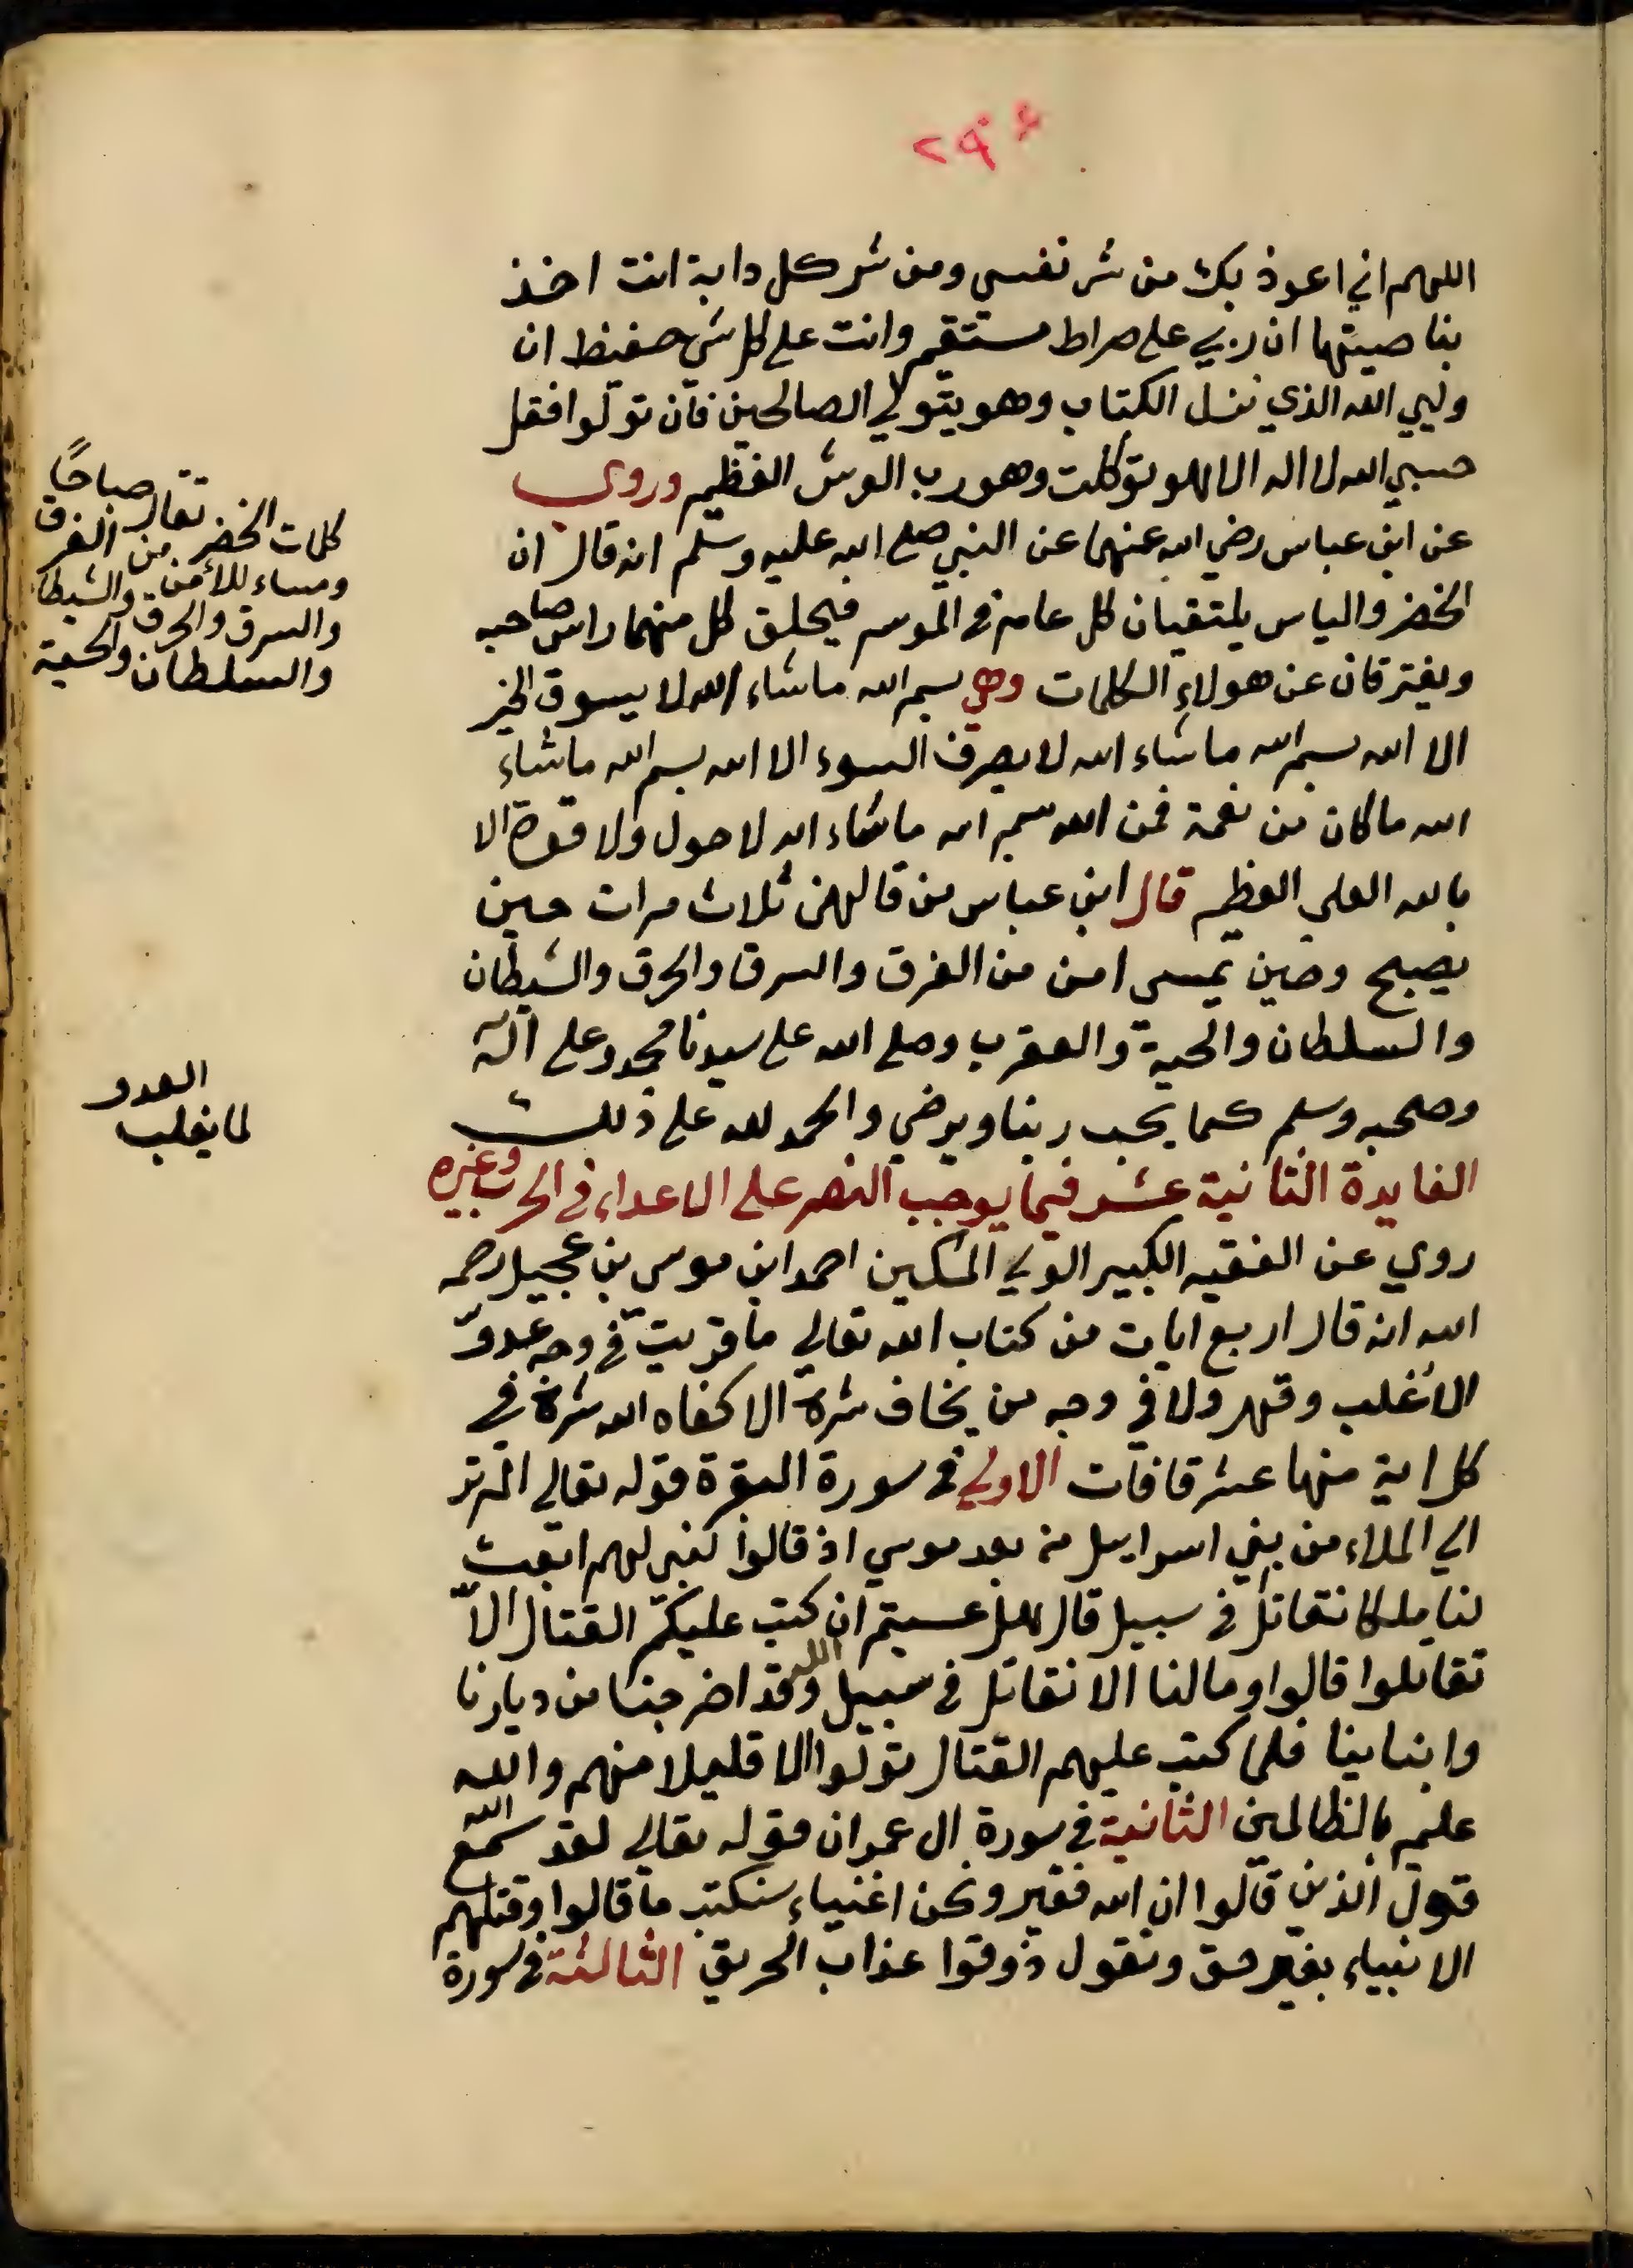 اللهم اني اعوذ بك من شر نفسي ومن شر كل دابة انت اخذ
بناصيتها ان ربي على صراط مستقيم وانت على كل شي حفيظ ان
وليي الله الذي نزل الكتاب وهو يتولي الصالحين فان تولوا فقل
حسبي الله لا اله الا هو توكلت وهو رب العرش العظيم وروى
عن ابن عباس رضي الله عنهما عن النبي صلى الله عليه وسلم انه قال ان
الخضر والياس يلتقيان كل عام في الموسم فيحلق كل منهما راس صاحبه
ويفترقان عن هولاء الكلمات وهي بسم الله ما شاء الله لا يسوق الخير
الا الله بسم الله ما شاء الله لا يصرف السوء الا الله بسم الله ما شاء
الله ما كان من نعمة فمن الله بسم الله ما شاء الله لا حول ولا قوة الا
بالله العلي العظيم قال ابن عباس من قالهن ثلاث مرات حين
يصبح وحين يمسي امن من الغرق والسرق والحرق والشيطان
والسلطان والحية والعقرب وصلى الله على سيدنا محمد وعلى آله
وصحبه وسلم كما يحب ربنا ويرضي والحمد لله على ذلك
الفايدة الثانية عشر فيما يوجب النصر على الاعداء في الحرب وغيره
روي عن الفقيه الكبير الولي المكين احمد ابن موسى بن عجيل رحمه
الله انه قال اربع ايات من كتاب الله تعالي ما قريت في وجه عدوّ
الا غلب وقهر ولا في وجه من يخاف شره الا كفاه الله شره في
كل اية منها عشر قافات الاولي في سورة البقرة قوله تعالي الم تر
الي الملاء من بني اسرايل من بعد موسي اذ قالوا لنبي لهم ابعث
لنا ملكا نقاتل في سبيل قال هل عسيتم ان كتب عليكم القتال الاّ
تقاتلوا قالوا وما لنا الا نقاتل في سبيل الله وقد اخرجنا من ديارنا
وابناينا فلما كتب عليهم القتال تولوا الا قليلا منهم والله
عليم بالظالمين الثانية في سورة ال عمران قوله تعالي لقد سمع الله
قول الذين قالوا ان الله فقير ونحن اغنياء سنكتب ما قالوا وقتلهم
الانبياء بغير حق ونقول ذوقوا عذاب الحريق الثالثة في سورة
كلمات الخضر تقال صباحًا
ومساء للأمن من الغرق
والسرق والحرق والشيطان
والسلطان والحية
لما يغلب
العدو